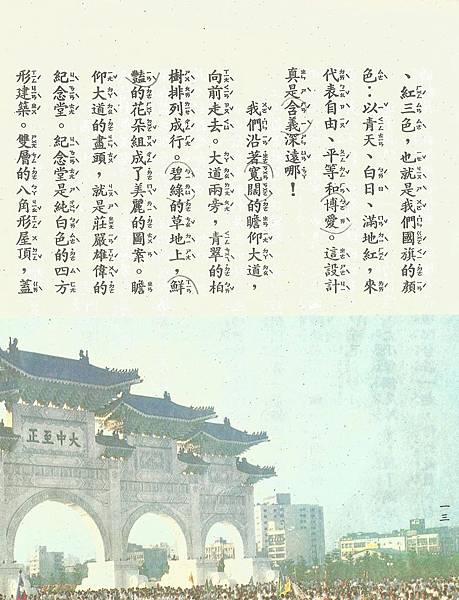 、紅三色，也就是我們國旗的顏
色：以青天、白日、滿地紅，來
代表自由、平等和博愛。這設計
真是含義深遠哪！
我們沿著寬闊的瞻仰大道，
向前走去。大道兩旁，青翠的柏
樹排列成行。碧綠的草地上，鮮
豔的花朵組成了美麗的圖案。瞻
仰大道的盡頭，就是莊嚴雄偉的
紀念堂。紀念堂是純白色的四方
形建築。雙層的八角形屋頂，蓋
正至中大
一三